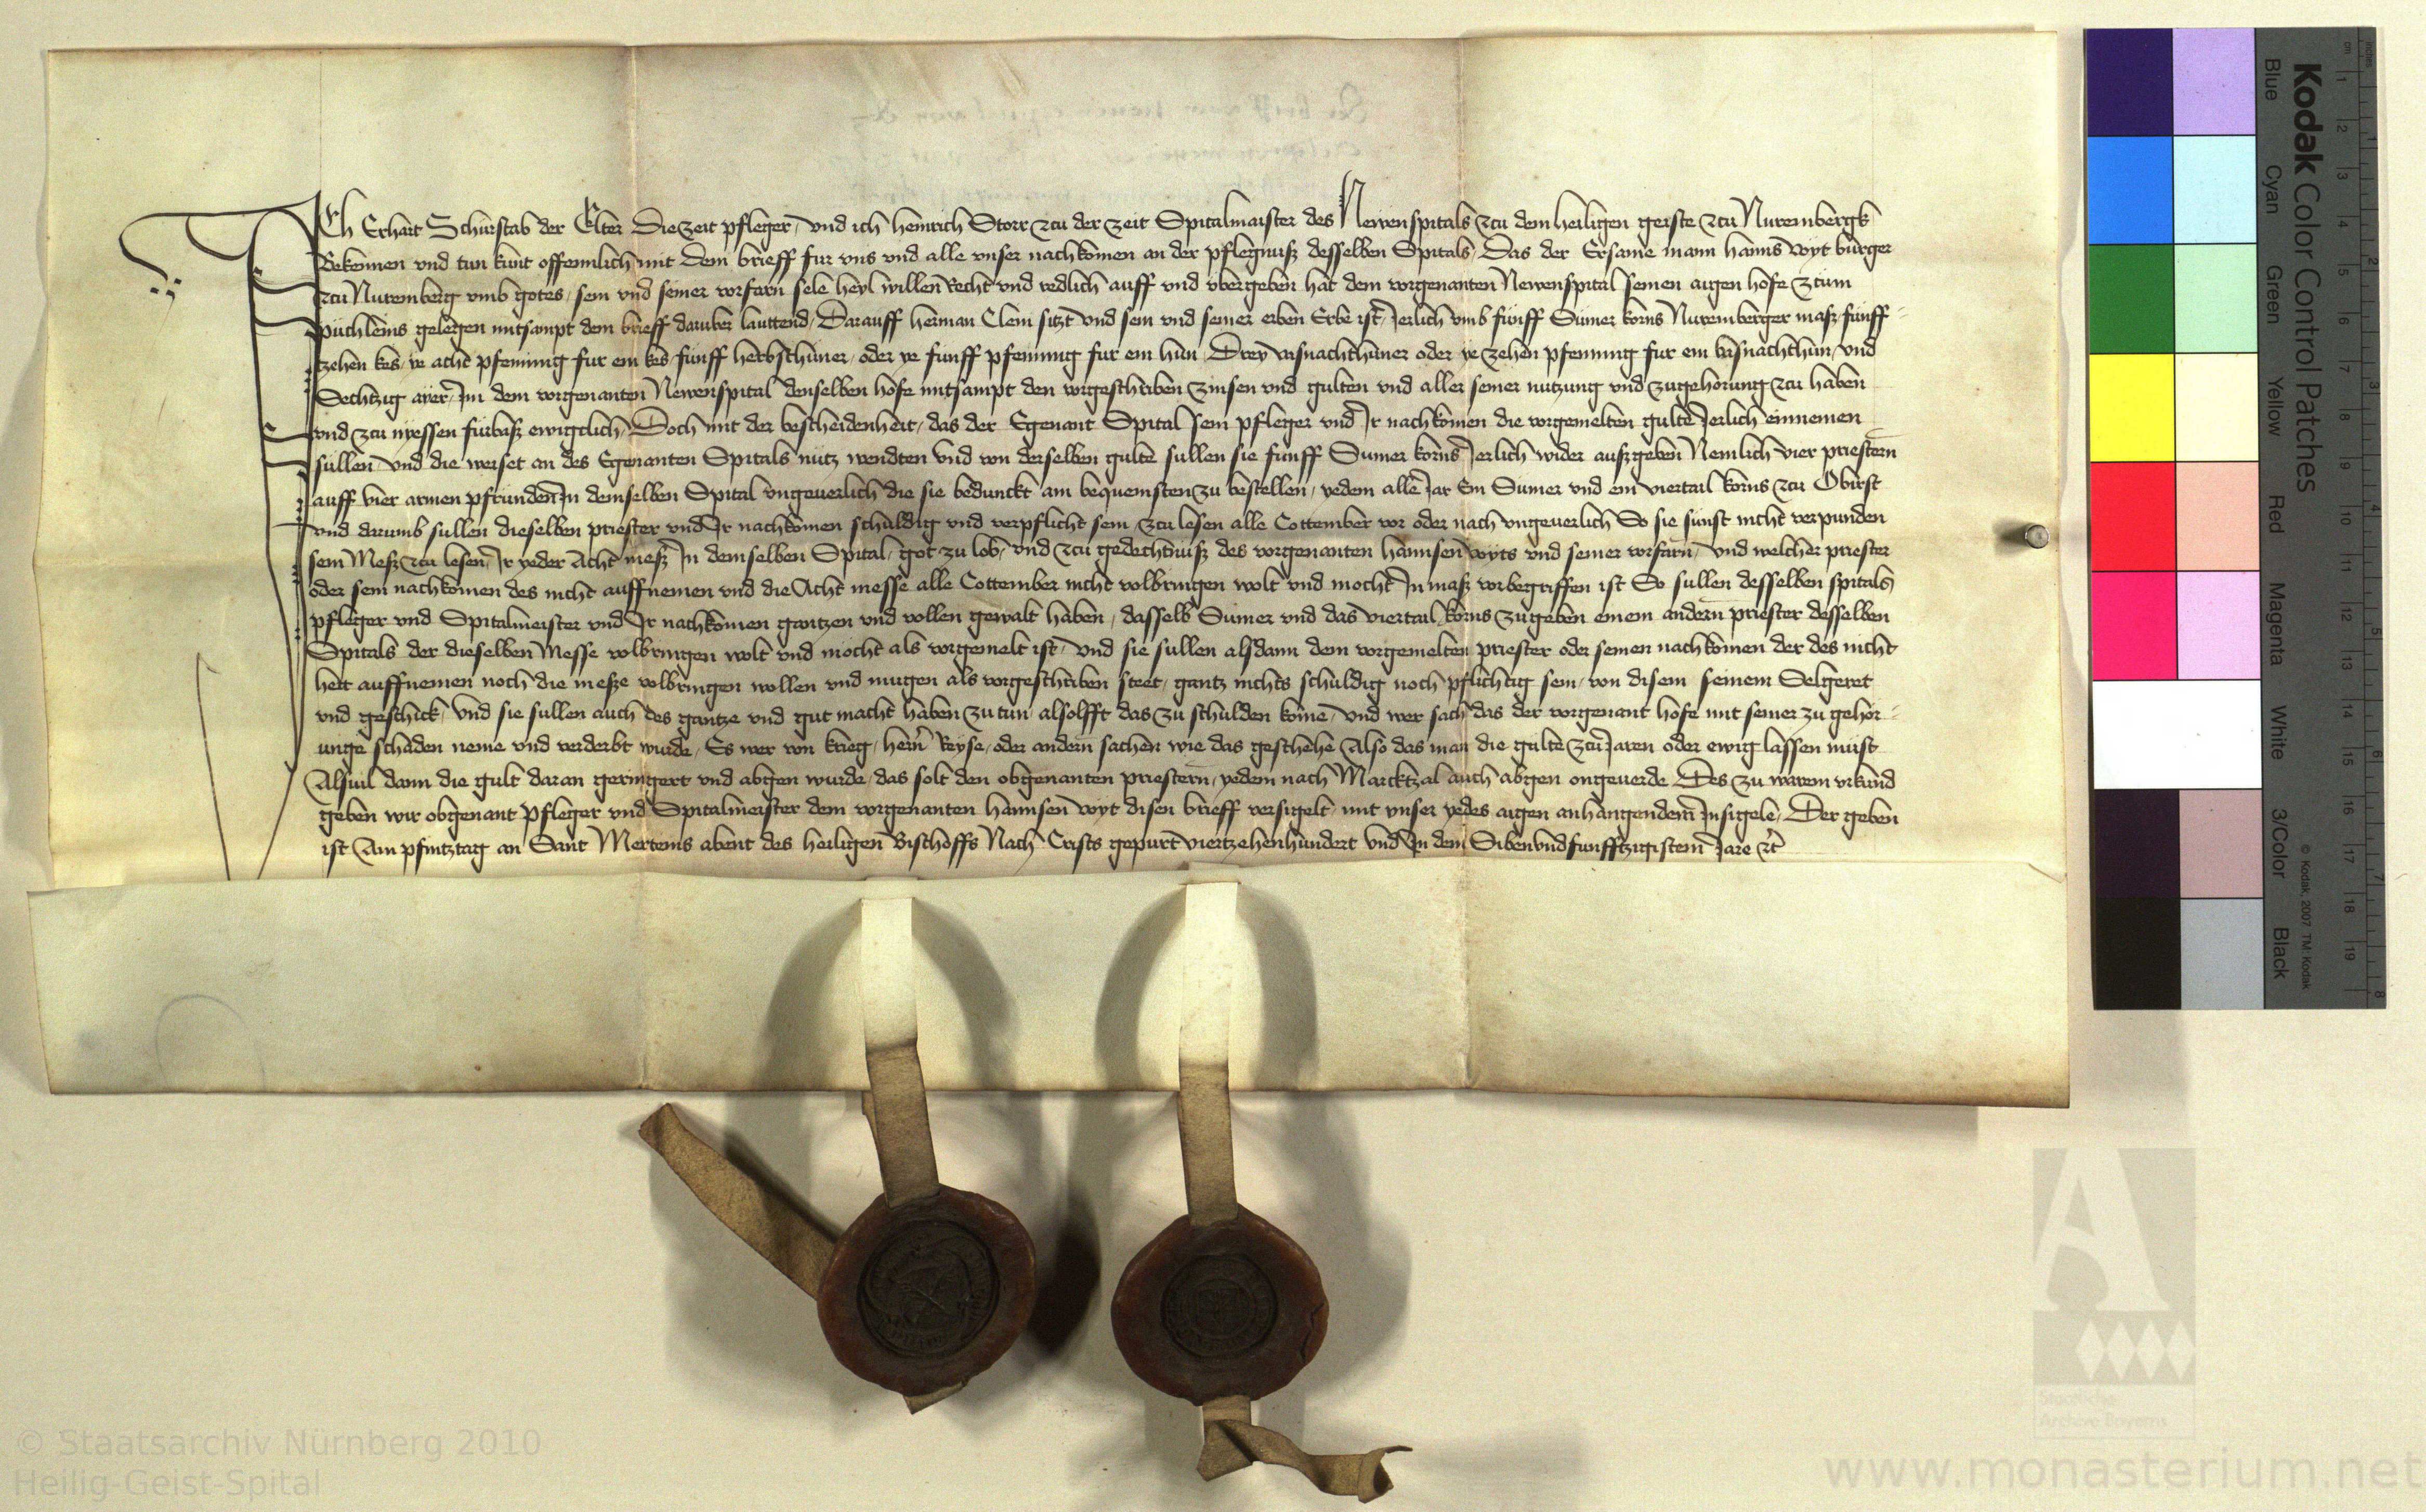 Ich Erhart Schürstab der Elter Die zeit pfleger, vnd ich heinrich Storr zcu der zeit Spitalmaister des Newenspitals zcu dem heiligen geiste zcu Nurembergk
Bekennen vnd tun kunt offennlich mit dem brieff fur vns vnd alle vnser nachkomen an der pflegnusz desselben Spitals, Das der Ersame mann hanns voyt burger
zcu Nuremberg vmb gotes, sein vnd seiner vorfarn sele heyl willen Recht vnd redlich auff vnd vbergeben hat dem vorgenanten Newenspital seinen aigen hofe zcum
püchleins gelegen mitsampt dem brieff daruber lauttend, Darauff herman Clem sitzt vnd sein vnd seiner erben Erbe ist, Jerlich vmb fünff Sümer korns Nuremberger masz, fünff-
tzehen kes, ye acht pfenning fur ein kes, fünff herbsthüner, oder ye funff pfenning fur ein hün, Drey vasnachthüner oder ye zehen pfenning fur ein vasnachthün, vnd
Sechtzig ayer, Im dem vorgenanten Newenspital denselben hofe mitsampt den vorgeschriben zinsen vnd gulten vnd aller seiner nutzung vnd zugehorung zcu haben
vnd zcu nyessen fürbasz ewigclich, Doch mit der bescheidenheit, das der Egenant Spital sein pfleger vnd Ir nachkomen die vorgemelten gulte Jerlich einnemen
süllen, vnd die weiset an des Egenanten Spitals nutz wendten vnd von derselben gulte sullen sie fünff Sumer korns Jerlich wider auszgeben Nemlich vier priestern
auff vier armen pfründen In demselben Spital vngeuerlich die sie bedunckt am bequemsten zu bestellen, yedem alle Jar Ein Sumer vnd ein viertail korns zcu Obirst
vnd darumb sullen dieselben priester vnd Ir nachkomen schuldig vnd verpflicht sein zcu lesen alle Cottember vor oder nach vngeuerlich So sie sunst nicht verpunden
sein Mesz zcu lesen, Ir yeder Acht mesz In demselben Spital, got zu lob, vnd zcu gedechtnusz des vorgenanten hannsen voyts vnd seiner vorfarn, vnd welcher priester
oder sein nachkomen des nicht auffnemen vnd die Acht messe alle Cottember nicht volbringen wolt vnd mocht In masz vorbegriffen ist So sullen desselben spitals
pfleger vnd Spitalmeister vnd Ir nachkomen gantzen vnd vollen gewalt haben, dasselb Sumer vnd das viertail korns zugeben einem andern priester desselben
Spitals der dieselben Messe volbringen wolt vnd mocht als vorgemelt ist, vnd sie sullen alsdann dem vorgemelten priester oder seinen nachkomen der des nicht
hett auffnemen noch die mesze volbringen wollen vnd mugen als vorgeschriben steet, gantz nichts schuldig noch pflichtig sein, von disem seinem Selgeret
vnd geschick, vnd sie sullen auch des gantze vnd gut macht haben zu tun, alsofft das zu schulden kome, vnd wer sach das der vorgenant hofe mit seiner zu gehor-
unge schaden neme vnd verderbt wurde, Es wer von krieg, hern Reyse, oder andern sachen wie das geschehe Also das man die gulte zcu Jaren oder ewig lassen must
Alsuil dann die gult daran geringert vnd abgen wurde, das solt den obgenanten priestern, yedem nach Marcktzal auch abgen ongeuerde Des zu warem vrkund
geben wir obgenant Pfleger vnd Spitalmeister dem vorgenanten hannsen voyt disen brieff versigelt mit vnser yedes aigen anhangendem Insigele, Der geben
ist Am pfintztag an Sant Merteins abent des heiligen Bischoffs Nach Crists gepurt viertzehenhundert vnd In dem Sibenvndfunfftzigistem Jare zc
Kodak Color Control Patches
Blue Cyan Green Yellow Red Magenta White 3/Color Black
© Kodak, 2007 TM: Kodak
cm 1 2 3 4 5 6 7 8 9 10 11 12 13 14 15 16 17 18 19
inches 1 2 3 4 5 6 7 8
Staatliche
Archive Bayerns
© Staatsarchiv Nürnberg 2010
Heilig-Geist-Spital
www.monasterium.net